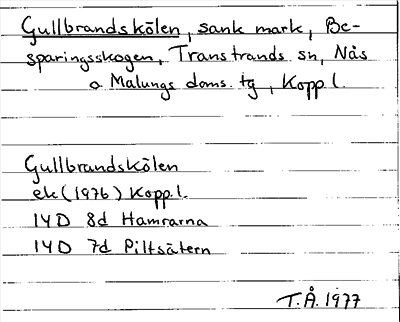 Gullbrandskölen, sank mark, Be-
sparingsskogen, Transtrands sn, Nås
o Malungs doms. tg, Kopp. l.
Gullbrandskölen
ek (1976) Kopp.l.
14D 8d Hamrarna
14D 7d Piltsätern
T.Å. 1977